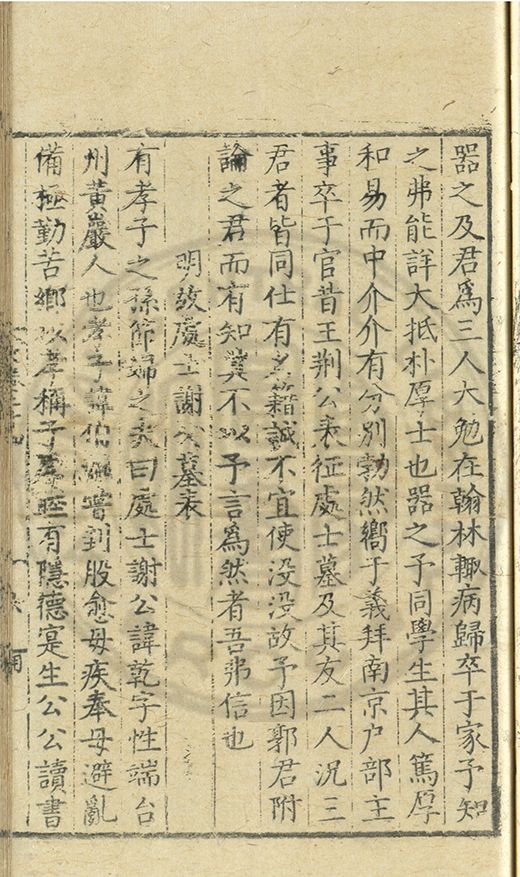 器之及君爲三人大勉在翰林輙病歸卒于家予知
之弗能詳大抵朴厚士也器之予同學生其人篤厚
和易而中介介有分別勃然嚮于義拜南京户部主
事卒于官昔王荆公表征處士墓及其友二人況三
君者皆同仕有名籍誠不宜使没没故予因郭君附
論之君而有知冀不以予言爲然者吾弗信也
明故處士謝公墓表
有孝子之孫節婦之夫曰處士謝公諱乾字性端台
州黄巖人也孝子諱伯 嘗刲股愈母疾奉母避亂
備極勤苦鄉以孝稱子 胚有隱德寔生公公讀書